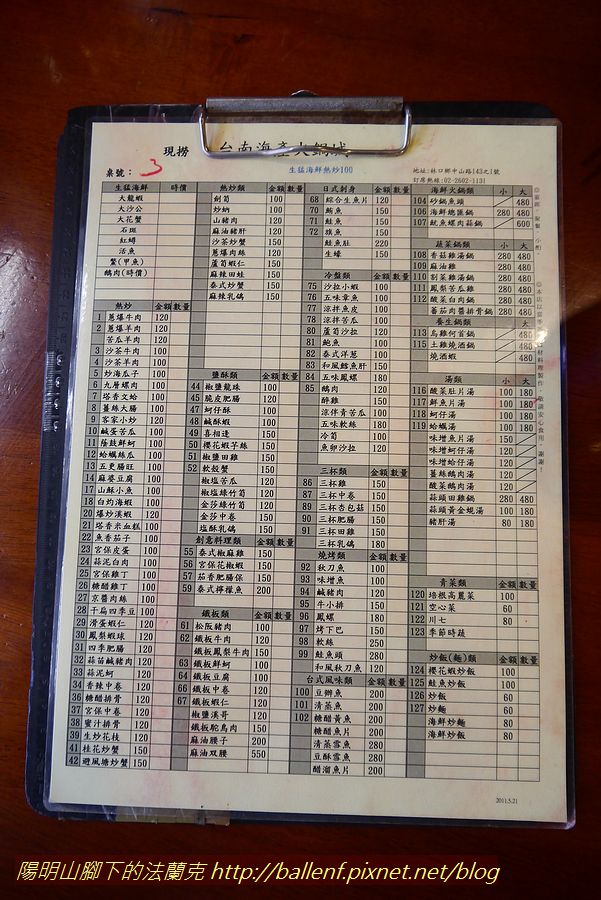 現撈 台南海產火鍋城
桌號： 3
生猛海鮮熱炒100
地址：林口鄉中山路143之1號
訂席熱線：02-2602-1131
生猛海鮮 時價
大龍蝦
大沙公
大花蟹
石斑
紅蟳
活魚
鱉(甲魚)
鵝肉(時價)
熱炒 金額 數量
1 蔥爆牛肉 120
2 蔥爆羊肉 120
苦瓜羊肉 120
3 沙茶牛肉 100
4 沙茶羊肉 100
5 炒海瓜子 100
6 九層螺肉 150
7 塔香文蛤 100
8 薑絲大腸 100
9 客家小炒 120
10 鹹蛋苦瓜 100
11 蔭豉鮮蚵 100
12 蛤蠣絲瓜 100
13 五更腸旺 150
14 麻婆豆腐 100
17 山蘇小魚 100
18 白灼海蝦 100
20 爆炒溪蝦 120
21 塔香米血糕 100
22 魚香茄子 100
23 宮保皮蛋 100
24 蒜泥白肉 100
25 宮保雞丁 100
26 糖醋雞丁 100
27 京醬肉絲 100
28 干扁四季豆 100
29 滑蛋蝦仁 120
30 鳳梨蝦球 120
31 四季肥腸 150
32 蒜苗鹹豬肉 120
33 蒜泥蚵 100
34 香辣中卷 120
36 糖醋排骨 120
37 宮保中卷 120
38 蜜汁排骨 120
39 生炒花枝 120
41 桂花炒蟹 150
42 避風塘炒蟹 150
熱炒類 金額 數量
劍筍 100
炒蚋 100
山豬肉 120
麻油豬肝 120
沙茶炒蟹 150
蔥爆肉絲 120
蘆筍蝦仁 150
麻辣田蛙 150
泰式炒蟹 150
麻辣乳鴿 150
鹽酥類 金額 數量
44 椒鹽龍珠 100
45 脆皮肥腸 120
47 蚵仔酥 100
48 鹹酥蝦 100
49 喜相逢 100
50 櫻花蝦芋絲 100
51 椒鹽田雞 150
52 軟殼蟹 150
椒塩苦瓜 120
椒塩綠竹筍 120
金莎綠竹筍 120
金莎中卷 150
塩酥乳鴿 150
創意料理類 金額 數量
55 泰式椒麻雞 150
56 宮保花椒蝦 150
57 茄香肥腸保 150
59 泰式檸檬魚 200
鐵板類 金額 數量
61 松阪豬肉 100
62 鐵板牛肉 120
鐵板鳳梨牛肉 150
63 鐵板鮮蚵 100
64 鐵板豆腐 100
66 鐵板中卷 120
67 鐵板蝦仁 120
椒鹽溪哥 120
鐵板駝鳥肉 150
麻油腰子 200
麻油双腰 550
日式刺身 金額 數量
68 綜合生魚片 120
70 鮪魚 150
71 鮭魚 150
72 旗魚 150
鮭魚肚 220
生蠔 150
冷盤類 金額 數量
75 沙拉小蝦 100
76 五味章魚 100
77 涼拌魚皮 100
78 涼拌苦瓜 100
80 蘆筍沙拉 120
81 鮑魚 100
82 泰式洋蔥 100
83 和風鱈魚肝 150
84 五味鳳螺 180
85 鵝肉 120
醉雞 150
涼伴青苦瓜 100
五味軟絲 180
冷筍 100
魚卵沙拉 120
三杯類 金額 數量
86 三杯雞 150
87 三杯中卷 150
89 三杯杏包菇 150
90 三杯肥腸 150
91 三杯田雞 150
三杯乳鴿 180
燒烤類 金額 數量
92 秋刀魚 100
93 味增魚 100
94 鹹豬肉 120
95 牛小排 150
96 鳳螺 180
97 烤下巴 150
98 軟絲 250
99 鮭魚頭 280
和風秋刀魚 120
台式風味類 金額 數量
100 豆瓣魚 200
101 清蒸魚 200
102 糖醋黃魚 200
糖醋魚片 200
清蒸雪魚 280
豆酥雪魚 280
醋溜魚片 200
海鮮火鍋類 小 大
104 砂鍋魚頭 480
106 海鮮總匯鍋 280 480
107 魷魚螺肉蒜鍋 600
蔬菜鍋類 小 大
108 香菇雞湯鍋 280 480
109 麻油雞 280 480
110 刈菜雞湯鍋 280 480
111 鳳梨苦瓜雞 280 480
112 酸菜白肉鍋 280 480
蕃茄肉醬排骨鍋 280 480
養生鍋類 大
113 烏雞何首鍋 480
115 土雞燒酒鍋 480
燒酒蝦 480
湯類 小 大
116 酸菜肚片湯 100 180
117 鮮魚片湯 100 180
118 蚵仔湯 100 180
119 蛤蠣湯 100 180
味增魚片湯 150
味增蚵仔湯 120
味增蛤仔湯 120
薑絲鵝肉湯 120
酸菜鵝肉湯 120
蒜頭田雞鍋 280 480
蒜頭黃金蜆湯 100 180
豬肝湯 80 180
青菜類 金額 數量
120 培根高麗菜 100
121 空心菜 60
122 川七 80
123 季節時蔬
炒飯(麵)類 金額 數量
124 櫻花蝦炒飯 100
125 鮭魚炒飯 100
126 炒飯 60
127 炒麵 60
海鮮炒麵 80
海鮮炒飯 80
2011.5.21
陽明山腳下的法蘭克 http://ballenf.pixnet.net/blog